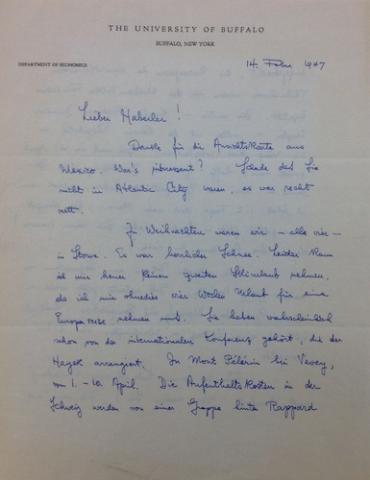 THE UNIVERSITY OF BUFFALO
BUFFALO, NEW YORK
DEPARTMENT OF ECONOMICS
14. Febr 1947
Lieber Haberler!
Danke für die Ansichtskarte aus
Mexico. War's interessant? Schade dass Sie
nicht in Atlantic City waren, es war recht
nett.
Zu Weihnachten waren wir – alle vier –
in Stowe. Es war herrlicher Schnee. Leider kann
ich mir heuer keinen zweiten Skiurlaub nehmen,
da ich mir ohnedies vier Wochen Urlaub für eine
Europareise nehmen muss. Sie haben wahrscheinlich
schon von der internationalen Konferenz gehört, die der
Hayek arrangiert. In Mont Pélerin bei Vevey,
vom 1. – 10. April. Die Aufenthaltskosten in der
Schweiz werden von einer Gruppe hinter Rappard